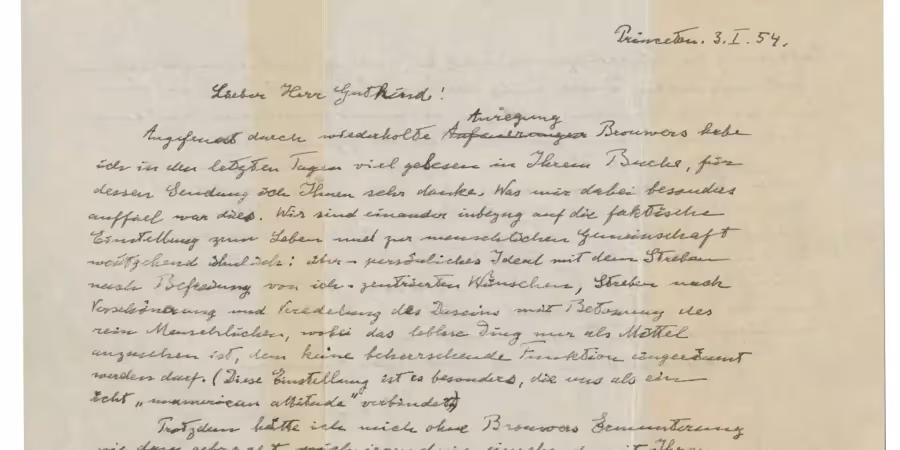 Princeton. 3. I. 54.
Lieber Herr Gutkind!
Anregung
Angefeuert durch wiederholte Anfeuerungen Brouwers habe
ich in den letzten Tagen viel gelesen in Ihrem Buche, für
dessen Sendung ich Ihnen sehr danke. Was mir dabei besonders
auffiel war dies. Wir sind einander inbezug auf die faktische
Einstellung zum Leben und zur menschlichen Gemeinschaft
weitgehend ähnlich: über-persönliches Ideal mit dem Streben
nach Befreiung von ich-zentrierten Wünschen, Streben nach
Verschönerung und Veredelung des Daseins mit Betonung des
rein Menschlichen, wobei das leblose Ding nur als Mittel
anzusehen ist, dem keine beherrschende Funktion eingeräumt
werden darf. (Diese Einstellung ist es besonders, die uns als ein
echt „unamerican attitude" verbindet.)
Trotzdem hätte ich mich ohne Brouwers Ermunterung